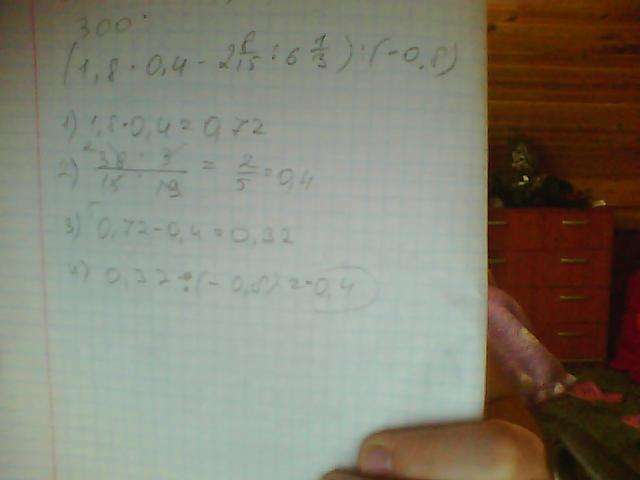 300.
(1,8 · 0,4 - 2 8/15 : 6 1/3) : (-0,8)
1) 1,8 · 0,4 = 0,72
2) 38 · 3 / 15 · 19 = 2/5 = 0,4
3) 0,72 - 0,4 = 0,32
4) 0,32 : (-0,8) = -0,4